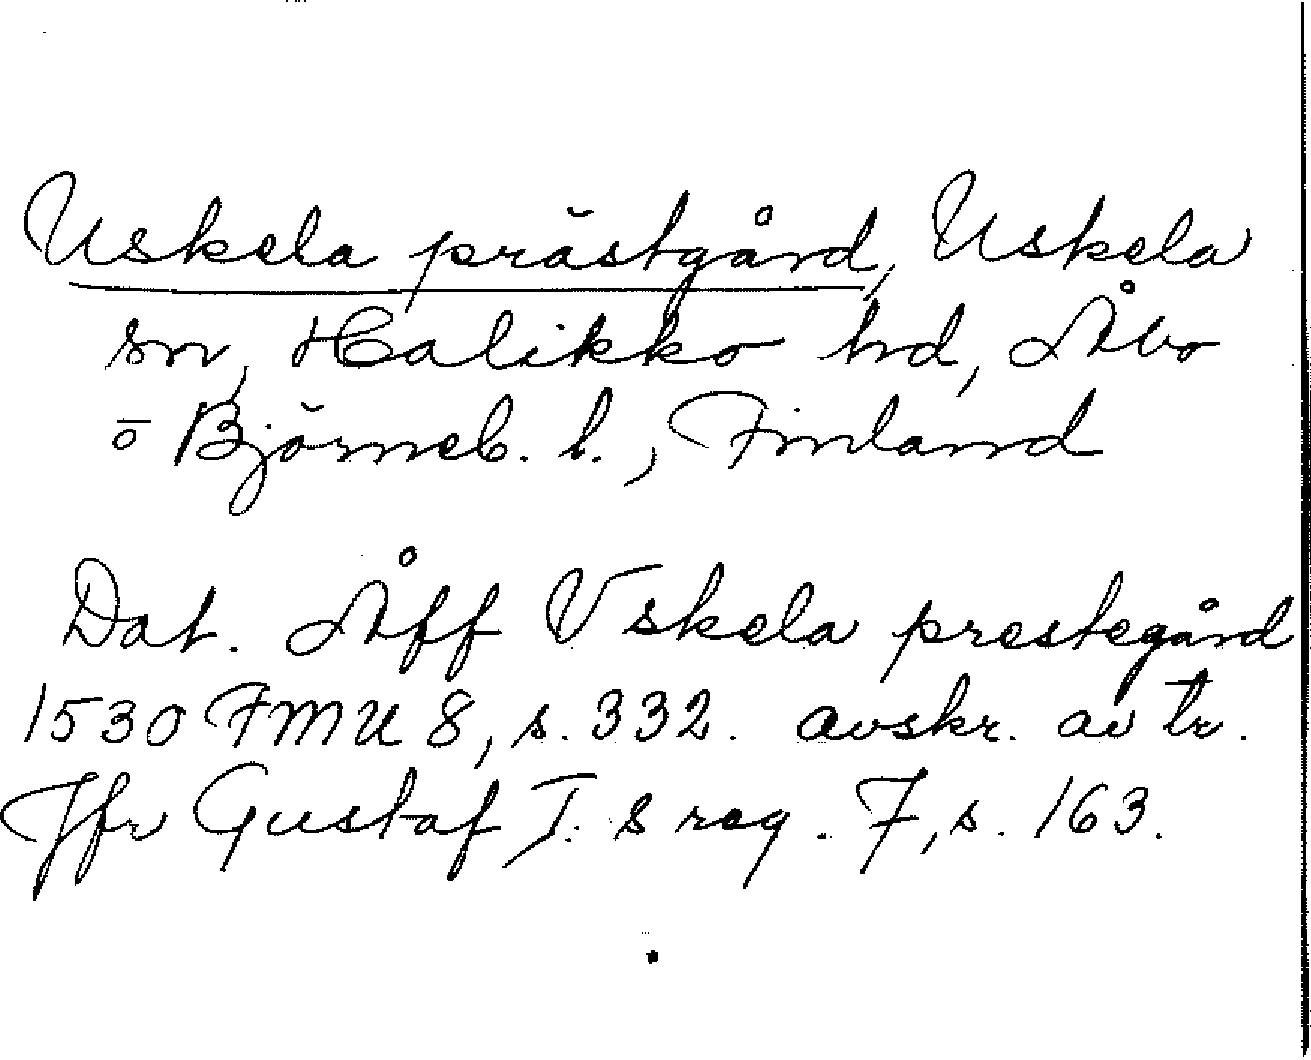 Uskela prästgård, Uskela
sn, Halikko hd, Åbo
o Björneb. l., Finland
Dat. Åff Vskela prestegård
1530 FMU 8, s. 332. avskr. av tr.
Jfr Gustaf I:s reg. 7, s. 163.